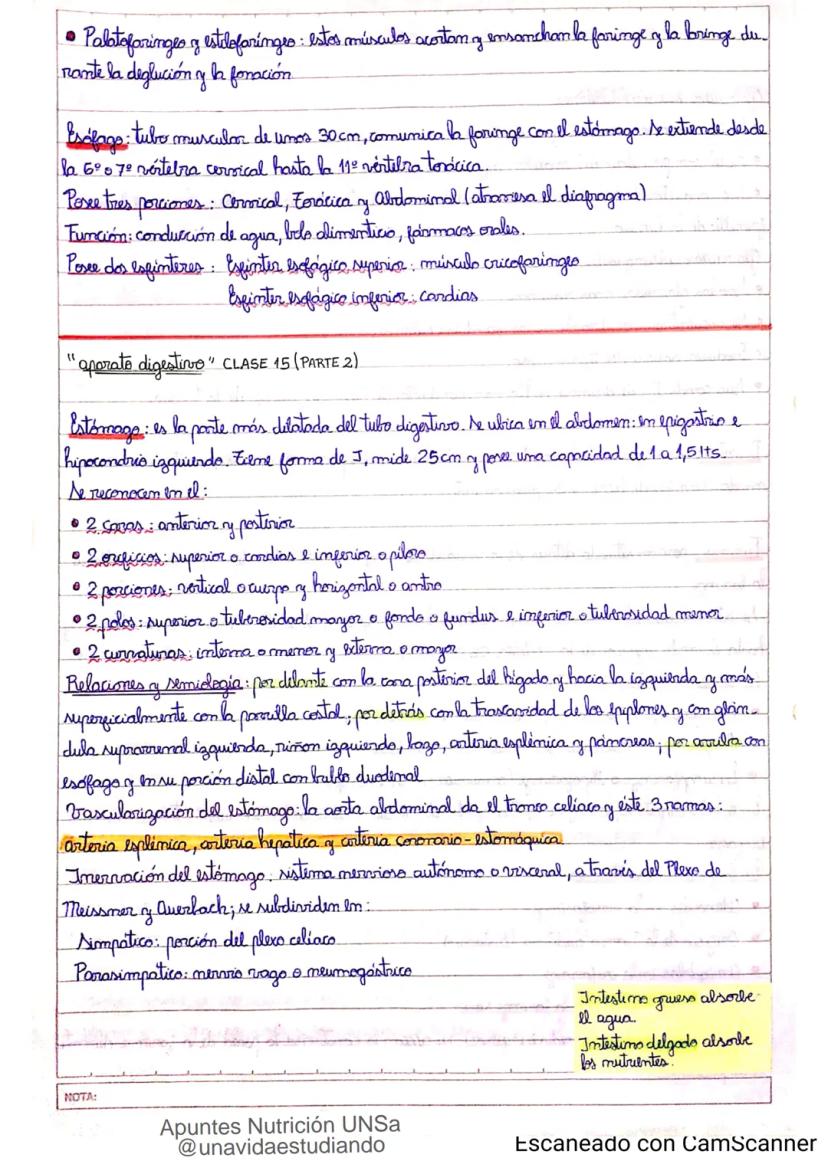 • Palatofaringeo y estilofaríngeo: estos músculos acortan y ensanchan la faringe y la laringe du-
rante la deglución y la fonación
Esófago: tubo muscular de unos 30cm, comunica la faringe con el estómago. Se extiende desde
la 6º o 7º vértebra cervical hasta la 11º vértebra torácica.
Posee tres porciones: Cervical, Torácica y Abdominal (atraviesa el diafragma)
Función: conducción de agua, bolo alimenticio, fármacos orales.
Posee dos esfínteres: Esfínter esofágico superior: músculo cricofaríngeo
Esfínter esofágico inferior: cardias
"aparato digestivo" CLASE 15 (PARTE 2)
Estómago: es la parte más dilatada del tubo digestivo. Se ubica en el abdomen: en epigastrio e
hipocondrio izquierdo. Tiene forma de J, mide 25cm y posee una capacidad de 1 a 1,5 lts.
Se reconocen en el:
• 2 caras: anterior y posterior
• 2 orificios: superior o cardias e inferior o píloro
• 2 porciones: vertical o cuerpo y horizontal o antro
• 2 polos: superior o tuberosidad mayor o fondo o fundus e inferior o tuberosidad menor
• 2 curvaturas: interna o menor y externa o mayor
Relaciones y semiología: por delante con la cara posterior del hígado y hacia la izquierda y más
superficialmente con la parrilla costal; por detrás con la trascavidad de los epiplones y con glán-
dula suprarrenal izquierda, riñón izquierdo, bazo, arteria esplénica y páncreas; por arriba con
esófago y en su porción distal con bulbo duodenal
Vascularización del estómago: la aorta abdominal da el tronco celíaco y éste 3 ramas:
arteria esplénica, arteria hepática y arteria coronario-estomáquica
Inervación del estómago: sistema nervioso autónomo o visceral, a través del Plexo de
Meissner y Auerbach; se subdividen en:
Simpático: porción del plexo celíaco
Parasimpático: nervio vago o neumogástrico
Intestino grueso absorbe
el agua.
Intestino delgado absorbe
los nutrientes.
NOTA:
Apuntes Nutrición UNSa
@unavidaestudiando
Escaneado con CamScanner